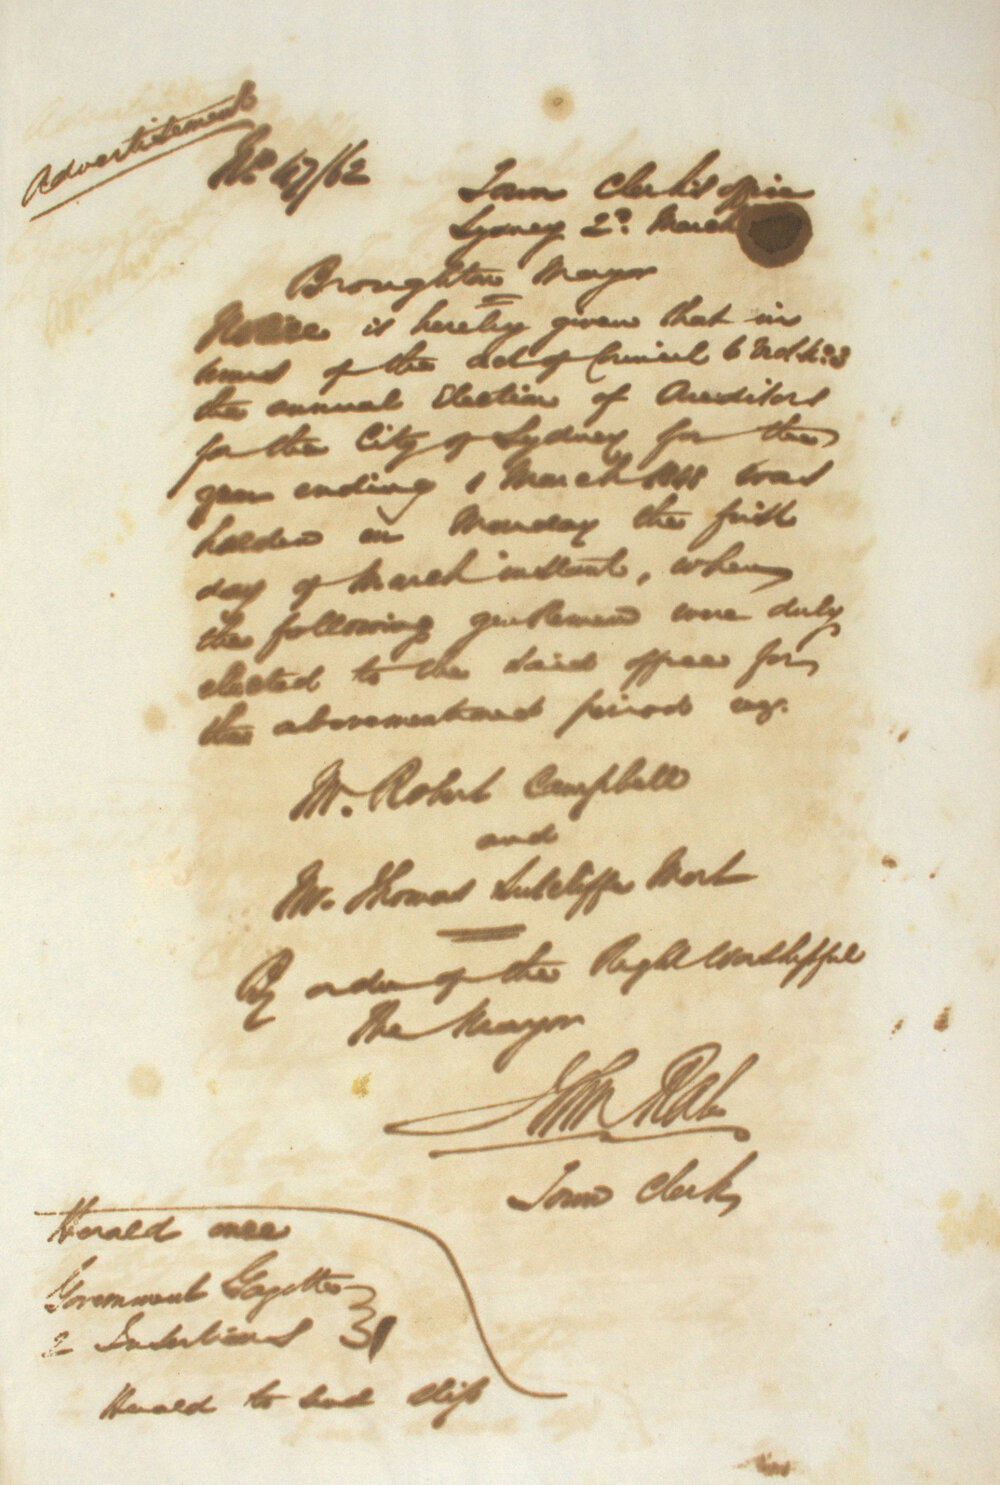 Advertisement
No 47/62
Town Clerk's office
Sydney 2d March
Broughton Mayor
Notice is hereby given that in
terms of the act of Council 6 Vict No 3
the annual Election of Auditors
for the City of Sydney for the
year ending 1 March was
holden on Monday the first
day of March instant, when
the following gentlemen were duly
elected to the said office for
the abovementioned period viz.
Mr. Robert Campbell
and
Mr. Thomas Sutcliffe Mort
By order of the Right Worshipful
The Mayor
Town Clerk
Herald once
Government Gazette
2 Insertions
Herald to send slip